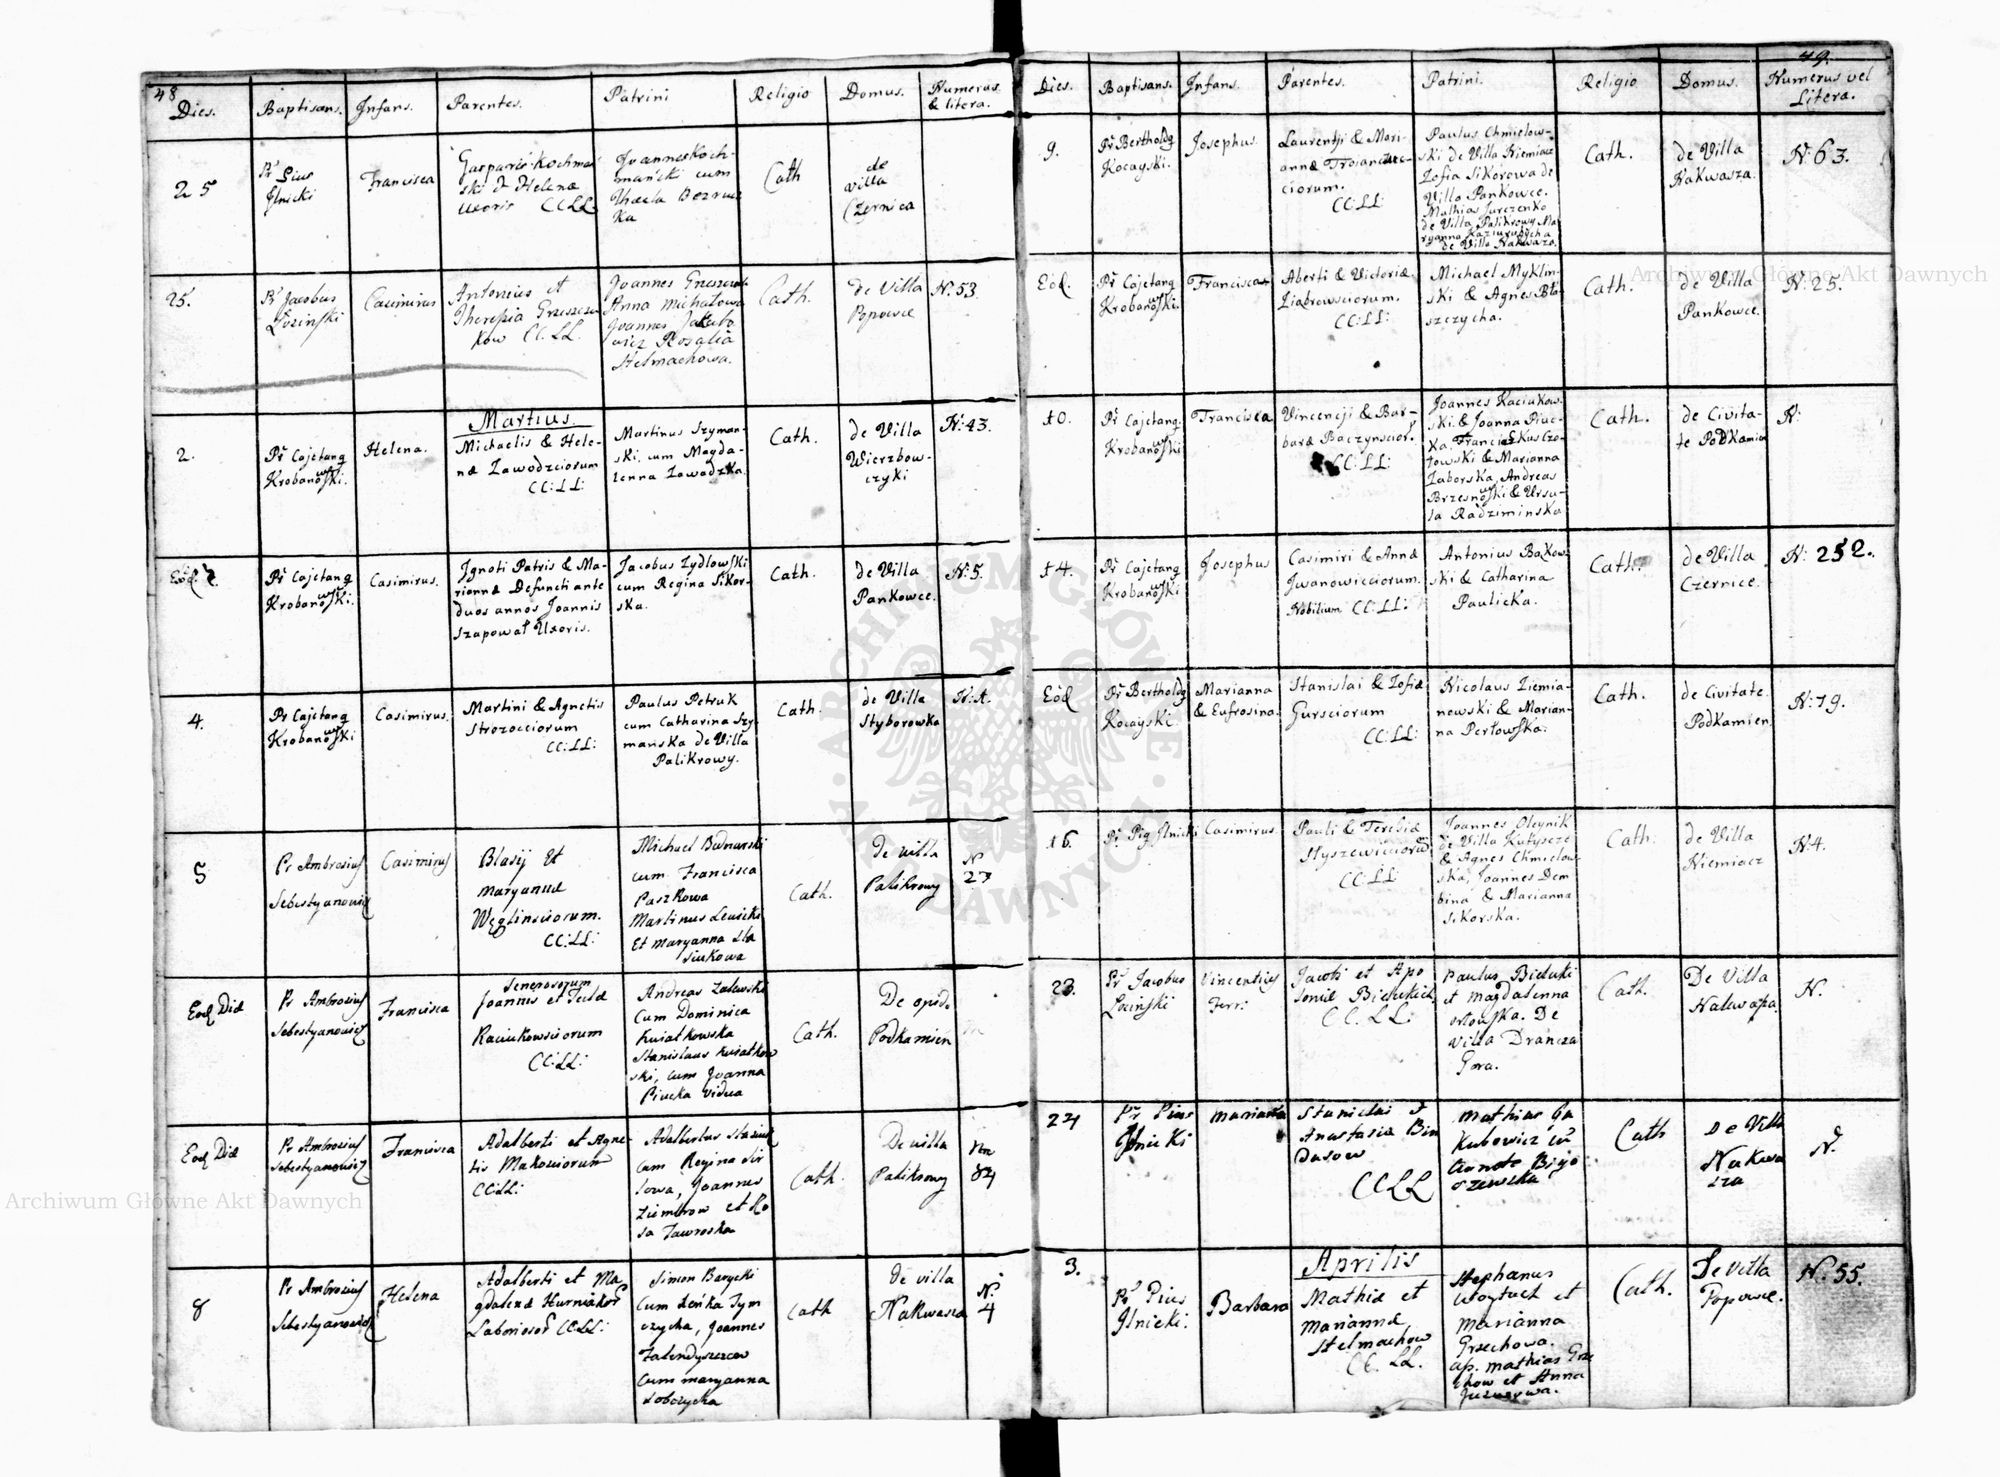 48
Dies.
Baptisans.
Infans.
Parentes.
Patrini
Religio
Domus.
Numerus
& litera.
25
Pr Pius
Ilnicki
Francisca
Gasparis Kochman
ski & Helenæ
Uxoris CCLL
Joannes Koch-
mański cum
Thecla
ka
Cath
de
villa
Czernica
25.
Pr Jacobus
Łoziński
Casimirus
Antonius et
Theresia Grzeszcz
kow CC.LL.
Joannes
Anna Michałowa
Joannes Jakubo
wicz Rosalia
Stelmachowa.
Cath.
de Villa
Popowce
N: 53
Martius.
2.
Pr Cajetanq
Krobanowski.
Helena.
Michaelis & Hele-
næ Zawodzciorum
CC:LL:
Martinus Szyman-
ski. cum Magda-
lenna Zawadzka.
Cath.
de Villa
Wierzbow-
czyki
N: 43.
Eod: 2.
Pr Cajetanq
Krobanowski.
Casimirus.
Ignoti Patris & Ma-
riannæ Defuncti ante
duos annos Joannis
Szapował Uxoris.
Jacobus Zydlowski
cum Regina Sikor-
ska.
Cath.
de Villa
Pankowce.
N: 5.
4.
Pr Cajetanq
Krobanowski
Casimirus.
Martini & Agnetis
Strozocciorum
CC:LL:
Paulus Petruk
cum Catharina Szy-
mańska de Villa
Palikrowy.
Cath.
de Villa
Styborowka
5
Pr Ambrosius
Sebestyanowicz
Casimirus
Blasij Et
Maryannæ
Węglinsciorum.
CC:LL:
Michael Bednarski
cum Francisca
Paszkowa
Martinus Lewicki
Et Maryanna Sta
siukowa
Cath.
de villa
Palikrowy
N
27
Eod Die
Pr Ambrosius
Sebestyanowicz
Francisca
Generosorum
Joannis et Teclæ
Raciukowsciorum
CC:LL:
Andreas Zalewski
Cum Dominica
Kwiatkowska
Stanislaus Kwiatkow
ski, cum Joanna
Piucka Vidua
Cath.
De opido
Podkamień
Eod Die
Pr Ambrosius
Sebestyanowicz
Francisca
Adalberti et Agne-
tis Makosciorum
CC:LL:
Adalbertus Stasiuk
cum Regina Sir
kowa, Joannes
Ziembrow et Ro
sa Jaworska
Cath.
De villa
Palikrowy
Nro
84
8
Pr Ambrosius
Sebestyanowicz
Helena
Adalberti et Ma
gdalenæ Hurniakor
Laboriosor CC:LL:
Simon Barycki
Cum Zońka Tym
czycha, Joannes
Cum Maryanna
Cath
de villa
Nakwasza
N.
4
49.
Dies.
Baptisans.
Infans.
Parentes.
Patrini.
Religio
Domus.
Numerus vel
Litera.
9.
Pr Bertholdq
Kocayski.
Josephus.
Laurentji & Mari-
annæ
ciorum.
CC:LL:
Paulus Chmielow-
ski de Villa Niemiacz
Zofia Sikorowa de
Villa Pankowce.
Mathias Jurczenko
de Villa Palikrowy Ma-
ryanna
de Villa Nakwasza.
Cath.
de Villa
Nakwasza.
N: 63.
Eod.
Pr Cajetanq
Krobanowski.
Francisca
Aberti & Victoriæ
Ziąbrowsciorum.
CC:LL:
Michael Myklin-
ski & Agnes Bła-
szczycha.
Cath.
de Villa
Pankowce.
N: 25.
10.
Pr Cajetanq
Krobanowski
Francisca
Vincencji & Bar-
baræ Baczynscior.
CC:LL:
Joannes Raciukow-
ski. & Joanna Piuc-
ka. Franciskus Czo-
towski & Marianna
Zaborska, Andreas
Brzesnowski & Ursu-
la Radziminska
Cath.
de Civita-
te Podkamien
N:
14.
Pr Cajetanq
Krobanowski
Josephus
Casimiri & Annæ
Iwanowicciorum.
Nobilium CC:LL:
Antonius Bąkow-
ski & Catharina
Pawlicka.
Cath.
de Villa
Czernice.
N: 252.
Eod
Pr Bertholdq
Kocayski
Marianna
& Eufrosina.
Stanislai & Zofiæ
Gursciorum
CC:LL:
Nicolaus Ziemia-
nowski & Marian-
na Perłowska.
Cath.
de Civitate.
Podkamien.
N: 19.
16.
Pr Piq Ilnicki
Casimirus.
Pauli & Teresiæ
Styszewicciorum
CC:LL
Joannes Oleynik
de Villa Kutyszcze
& Agnes Chmielow-
ska, Joannes Dem
bina & Marianna
Sikorska.
Cath.
de Villa
Niemiacz
N: 4.
23.
Pr Jacobus
Łoziński
Vincentius
Ferr:
Jacobi et Apo
loniæ Bieleckich
CC. LL:
Paulus Bielecki
et Magdalenna
Orłowska. De
Villa Drancza
Gora.
Cath.
De Villa
Nakwasza.
N.
24
Pr Pius
Ilnicki
Marianna
Stanislai &
Anastasiæ Bin
dasow
CCLL
Mathias Ja
kubowicz cũ
Cath
De Villa
Nakwa
sza
N.
Aprilis
3.
Pr Pius
Ilnicki.
Barbara
Mathiæ et
Mariannæ
Stelmachow
CC. LL.
Stephanus
Woytach et
Marianna
Grzechowa.
ap. Mathias Grze
chow et Anna
Cath.
De Villa
Popowce.
N. 55.
Archiwum Główne Akt Dawnych
Archiwum Główne Akt Dawnych
ARCHIWUM GŁÓWNE AKT DAWNYCH